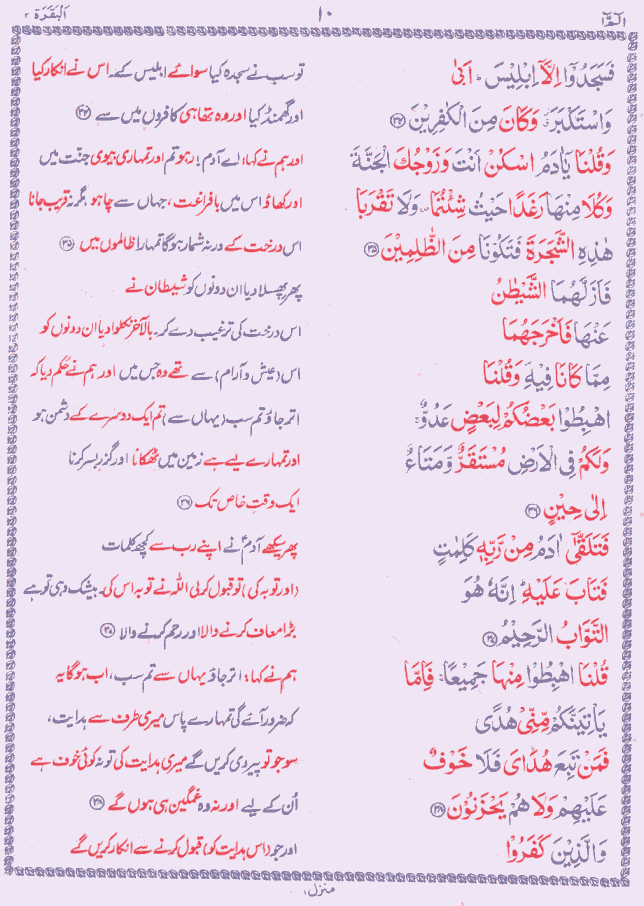 الٓمّٓ ١
١٠
اَلْبَقَرَة ٢
فَسَجَدُوْٓا اِلَّآ اِبْلِيْسَ ؕ اَبٰى
تو سب نے سجدہ کیا سوائے ابلیس کے۔ اس نے انکار کیا
وَاسْتَكْبَرَ ۫ وَكَانَ مِنَ الْكٰفِرِيْنَ ﴿۳۴﴾
اور گھمنڈ کیا اور وہ تھا ہی کافروں میں سے ﴿۳۴﴾
وَقُلْنَا يٰٓاٰدَمُ اسْكُنْ اَنْتَ وَزَوْجُكَ الْجَنَّةَ
اور ہم نے کہا: اے آدم! رہو تم اور تمہاری بیوی جنّت میں
وَكُلَا مِنْهَا رَغَدًا حَيْثُ شِئْتُمَا ۪ وَلَا تَقْرَبَا
اور کھاؤ اس میں بافراغت، جہاں سے چاہو مگر نہ قریب جانا
هٰذِهِ الشَّجَرَةَ فَتَكُوْنَا مِنَ الظّٰلِمِيْنَ ﴿۳۵﴾
اس درخت کے ورنہ شمار ہوگا تمہارا ظالموں میں ﴿۳۵﴾
فَاَزَلَّهُمَا الشَّيْطٰنُ
پھر پھسلا دیا ان دونوں کو شیطان نے
عَنْهَا فَاَخْرَجَهُمَا
اس درخت کی ترغیب دے کر۔ بالآخر نکلوا دیا ان دونوں کو
مِمَّا كَانَا فِيْهِ ۪ وَقُلْنَا
اس (عیش و آرام) سے تھے وہ جس میں اور ہم نے حُکم دیا کہ
اهْبِطُوْا بَعْضُكُمْ لِبَعْضٍ عَدُوٌّ ۚ
اتر جاؤ تم سب (یہاں سے) تم ایک دوسرے کے دشمن ہو
وَلَكُمْ فِى الْاَرْضِ مُسْتَقَرٌّ وَّمَتَاعٌ
اور تمہارے لیے ہے زمین میں ٹھکانا اور گزر بسر کرنا
اِلٰى حِيْنٍ ﴿۳۶﴾
ایک وقتِ خاص تک ﴿۳۶﴾
فَتَلَقّٰٓى اٰدَمُ مِنْ رَّبِّهٖ كَلِمٰتٍ
پھر سیکھے آدمؑ نے اپنے رب سے کچھ کلمات
فَتَابَ عَلَيْهِ ؕ اِنَّهٗ هُوَ
(اور توبہ کی) تو قبول کرلی اللہ نے توبہ اس کی۔ بیشک وہی تو ہے
التَّوَّابُ الرَّحِيْمُ ﴿۳۷﴾
بڑا معاف کرنے والا اور رحم کرنے والا ﴿۳۷﴾
قُلْنَا اهْبِطُوْا مِنْهَا جَمِيْعًا ۚ فَاِمَّا
ہم نے کہا: اتر جاؤ یہاں سے تم سب، اب ہوگا یہ
يَاْتِيَنَّكُمْ مِّنِّىْ هُدًى
کہ ضرور آئے گی تمہارے پاس میری طرف سے ہدایت،
فَمَنْ تَبِعَ هُدَاىَ فَلَا خَوْفٌ
سو جو تو پیروی کریں گے میری ہدایت کی تو نہ کوئی خوف ہے
عَلَيْهِمْ وَلَا هُمْ يَحْزَنُوْنَ ﴿۳۸﴾
اُن کے لیے اور نہ وہ غمگین ہی ہوں گے ﴿۳۸﴾
وَالَّذِيْنَ كَفَرُوْا
اور جو (اس ہدایت کو) قبول کرنے سے انکار کریں گے
منزل ١